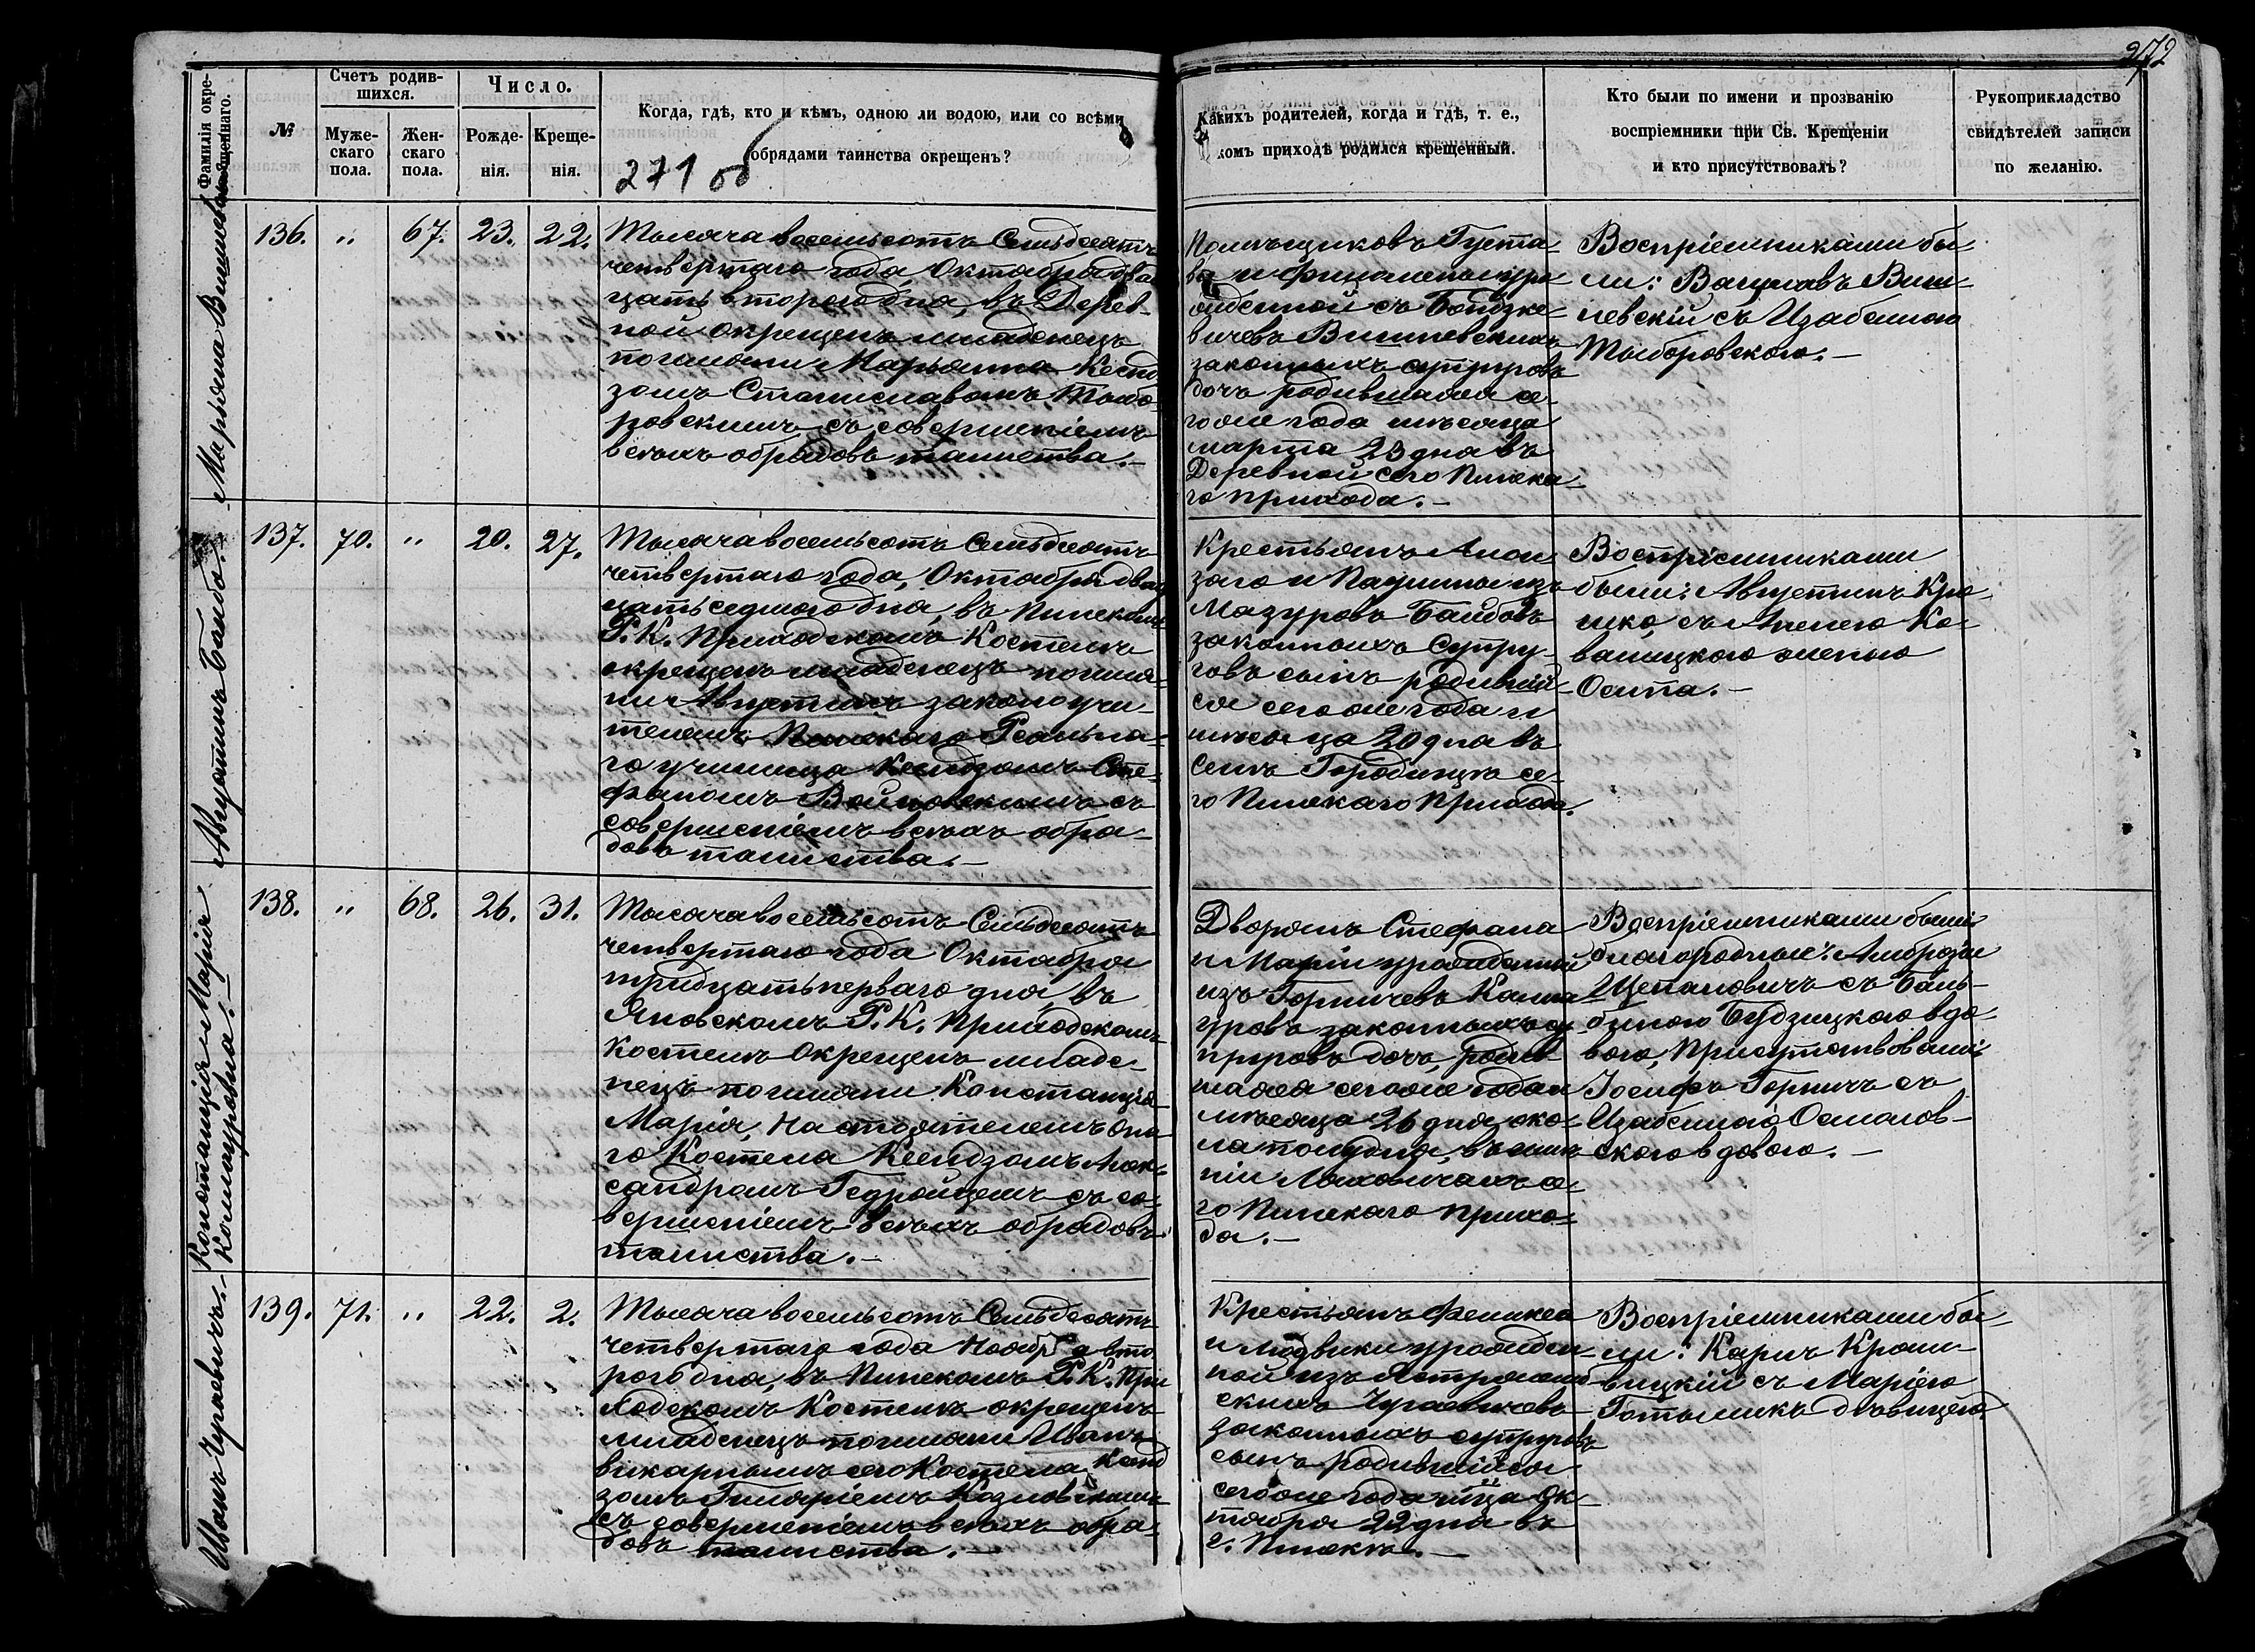 272
Фамилія окре-
щеннаго.
№
Счетъ родив-
шихся.
Муже-
скаго
пола.
Жен-
скаго
пола.
Число.
Рожде-
нія.
Креще-
нія.
Когда, гдѣ, кто и кѣмъ, одною ли водою, или со всѣми
обрядами таинства окрещенъ?
271 об
Какихъ родителей, когда и гдѣ, т. е.,
комъ приходѣ родился крещенный.
Кто были по имени и прозванію
воспріемники при Св. Крещеніи
и кто присутствовалъ?
Рукоприкладство
свидѣтелей записи
по желанію.
Марьяна
136. " 67. 23. 22.
Тысяча восемьсотъ Семьдесятъ
четвертаго года Октабря два
цать втораго дня, въ Дерев-
ной окрещенъ младенецъ
по имени Марьянна Ксенд
зомъ Станиславомъ Тыбо-
ровскимъ съ совершеніемъ
всѣхъ обрядовъ таинства.-
Помѣщиковъ Густа-
ва и Филомены уро
жденной съ
вичевъ Вишневскихъ
законныхъ супруговъ
дочь родившаяся се-
гоже года мѣсяца
марта 23 дня въ
Деревной сего Пинска-
го прихода.-
Воспріемниками бы-
ли: Вацлавъ Виш-
невскій съ Изабеллою
Тыборовскою.-
Августинъ Байда.
137. 70. " 20. 27.
Тысяча восемьсотъ Семьдесятъ
четвертаго года, Октабря два
цать седмого дня, въ Пинскомъ
Р. К. Приходскомъ Костелѣ
окрещенъ младенецъ по име-
ни Августинъ законоучи-
телемъ Пинскаго Реальна-
го училища Ксендзомъ Сте-
фаномъ Войновскимъ съ
совершеніемъ всѣхъ обря-
довъ таинства.-
Крестьянъ Алои
заго и Паулины изъ
Мазуровъ Байдовъ
законныхъ Супру-
говъ сынъ родившій-
ся сегоже года и
мѣсяца 20 дня въ
селѣ Городищѣ се-
го Пинскаго Прихода.
Воспріемниками
были: Августинъ
съ Анелею Ко-
валицкою женою
Осипа.-
Констанція Марія
Комлуровна.-
138. " 68. 26. 31.
Тысяча восемьсотъ Семьдесятъ
четвертаго года Октабря
тридцать перваго дня, въ
Яновскомъ Р. К. Приходскомъ
Костелѣ Окрещенъ младе-
нецъ по имени Констанція
Марія, Настоятелемъ она-
го Костела Ксендзомъ Алек-
сандромъ Гедройцемъ съ со-
вершеніемъ всѣхъ обрядовъ
таинства.-
Дворянъ Стефана
и Маріи урожденной
изъ Горничевъ
законныхъ су
пруговъ дочь, родив-
шаяся сегоже года и
мѣсяца 26 дня, око-
ла полудня, въ имѣ
ніи Ляховичахъ се-
го Пинскаго прихо-
да.-
Воспріемниками были
благородные: Амброзій
Щепановичъ съ Баль-
биною Будзицкою вдо-
вою, Присутствовали
Іосифъ Горничъ съ
Изабеллою Осмолов-
скою вдовою.-
Иванъ
139. 71. " 22. 2.
Тысяча восемьсотъ Семьдесятъ
четвертаго года Ноября вто
рого дня, въ Пинскомъ Р. К. При
ходскомъ Костелѣ окрещенъ
младенецъ по имени Иванъ
викарнымъ сего Костела Ксенд
зомъ Гиляріемъ Козловскимъ
съ совершеніемъ всѣхъ обря-
довъ таинства.-
Крестьянъ Феликса
и Людвики урожден-
ной изъ
скихъ
законныхъ супруговъ
сынъ родившійся
сегоже года мѣца Ок-
тября 22 дня въ
г. Пинскѣ.-
Воспріемниками бы-
ли: Карлъ
съ Маріею
дѣвицею.